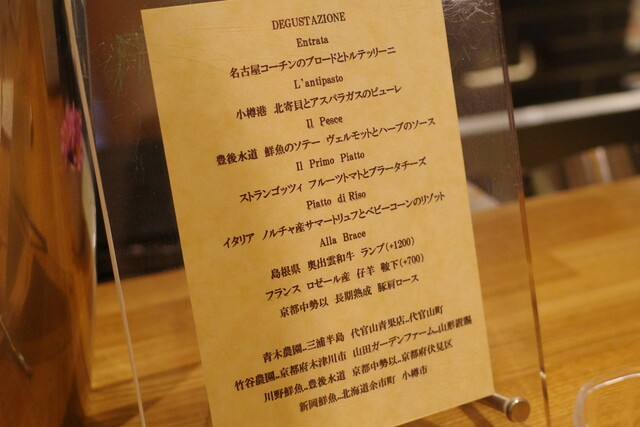 DEGUSTAZIONE
Entrata
名古屋コーチンのブロードとトルテッリーニ
L'antipasto
小樽港 北寄貝とアスパラガスのピューレ
Il Pesce
豊後水道 鮮魚のソテー ヴェルモットとハーブのソース
Il Primo Piatto
ストランゴッツィ フルーツトマトとブラータチーズ
Piatto di Riso
イタリア ノルチャ産サマートリュフとベビーコーンのリゾット
Alla Brace
島根県 奥出雲和牛 ランプ(+1200)
フランス ロゼール産 仔羊 鞍下(+700)
京都中勢以 長期熟成 豚肩ロース
青木農園…三浦半島 代官山青果店…代官山町
竹谷農園…京都府木津川市 山田ガーデンファーム…山形置賜
川野鮮魚…豊後水道 京都中勢以…京都府伏見区
新岡鮮魚…北海道余市町 小樽市